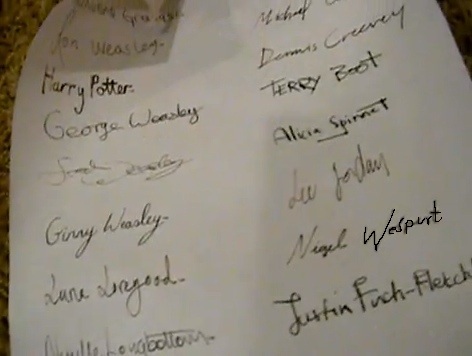 Ron Weasley
Harry Potter
George Weasley
Ginny Weasley
Luna Lovegood
Neville Longbottom
Michael
Dennis Creevey
TERRY BOOT
Alicia Spinnet
Lee Jordan
Nigel Wespurt
Justin Fuch-Fletchl